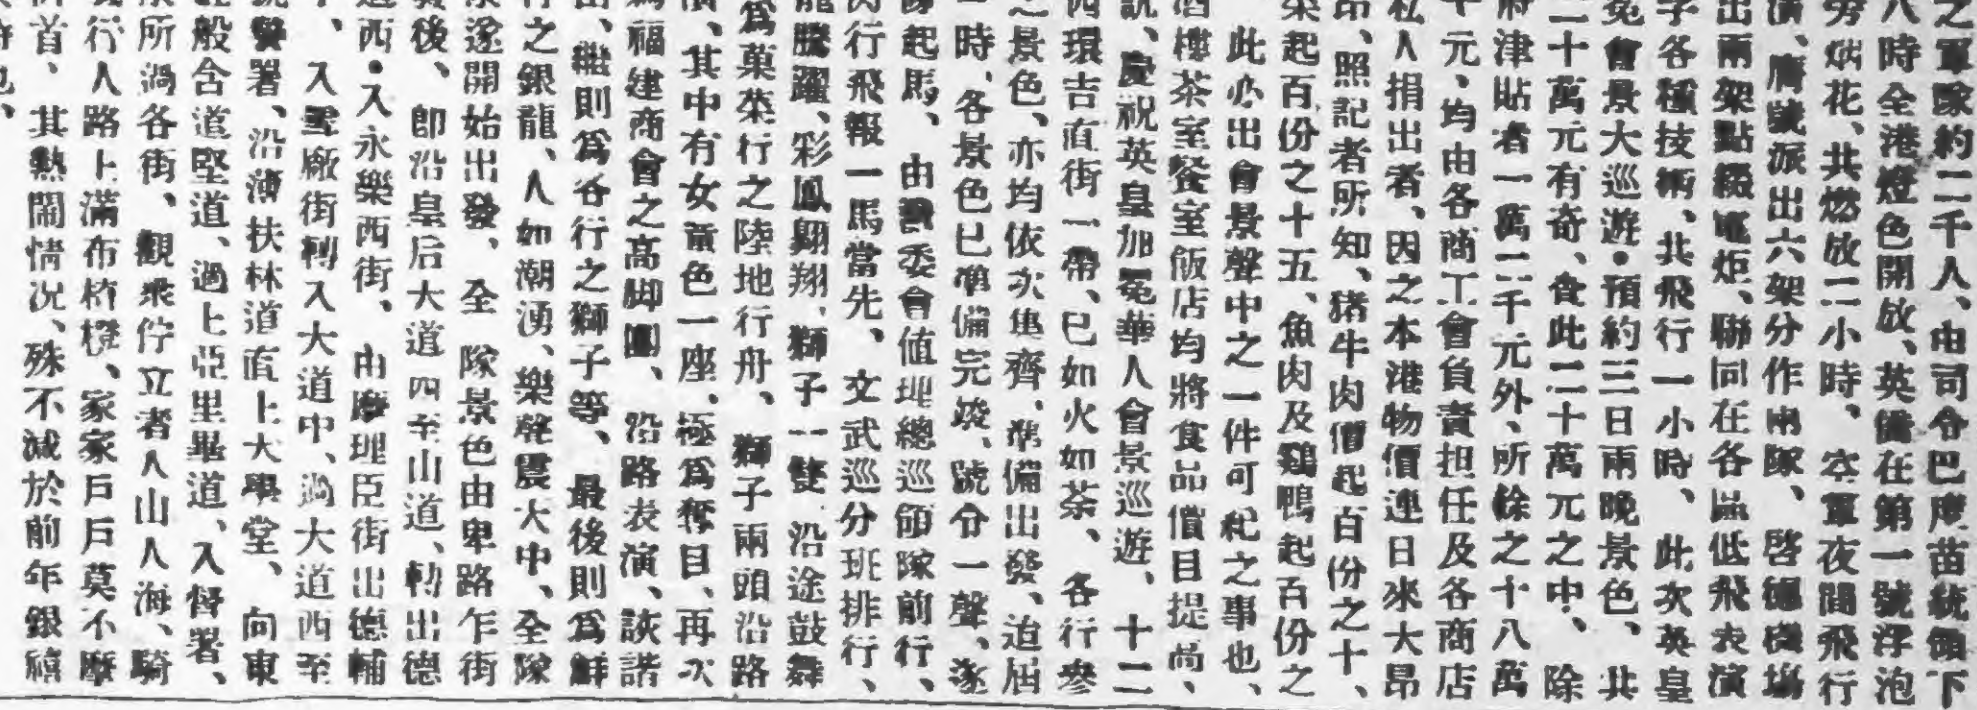 之軍隊約二千人、由司令巴度苗統領下
八時全港燈色開放、英儀在第一號浮泡
旁烟花、共燃放二小時、空軍夜間飛行
演、膺號派出六架分作兩隊、啓德機塲
出兩架點綴電炬、聯同在各區低飛表演
字各種技術、共飛行一小時、此次英皇
冕會景大巡遊•預約三日兩晚景色、共
二十萬元有奇、食此二十萬元之中、除
府津貼者一萬二千元外、所餘之十八萬
千元、均由各商工會負責担任及各商店
私人捐出者、因之本港物價連日來大昂
昂、照記者所知、猪牛肉價起百份之十、
菜起百份之十五、魚肉及鷄鴨起百份之
此亦出會景聲中之一件可紀之事也、
酒樓茶室餐室飯店均將食品價目提高、
訊、慶祝英皇加冕華人會景巡遊、十二
西環吉直街一帶、已如火如荼、各行參
之景色、亦均依次集齊、準備出發、迫屆
一時、各景色已準備完竣、號令一聲、遂
隊起馬、由委會值理總巡領隊前行、
肉行飛報一馬當先、文武巡分班排行、
龍騰躍、彩鳳翱翔、獅子一雙、沿途鼓舞
爲菓菜行之陸地行舟、獅子兩頭沿路
演、其中有女童色一座、極爲奪目、再次
爲福建商會之高脚團、沿路表演、詼諧
出、繼則爲各行之獅子等、最後則爲鮮
行之銀龍、人如潮湧、樂聲震大中、全隊
隊遂開始出發、全隊景色由卑路乍街
後、卽沿皇后大道西至山道、轉出德
道西•入永樂西街、由摩理臣街出德輔
中、入雪廠街轉入大道中、過大道西至
號警署、沿薄扶林道直上大學堂、向東
般含道堅道、過上亞里畢道、入督署、
所過各街、觀衆佇立者人山人海、騎
行人路上滿布椅櫈、家家戶戶莫不摩
首、其熱鬧情况、殊不減於前年銀禧
時也、